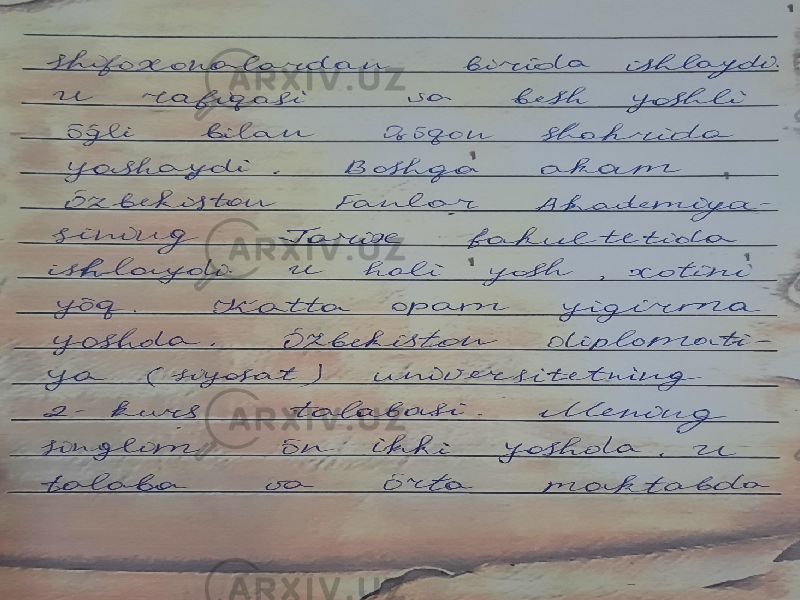 shifoxonalardan birida ishlaydi.
u rafiqasi va besh yoshli
õg̃li bilan Qõqon shahrida
yashaydi. Boshqa akam,
Õzbekiston Fanlar Akademiya-
sining Tarix fakultetida
ishlaydi. u hali yosh, xotini
yõq. Katta opam yigirma
yoshda. Õzbekiston diplomati-
ya (siyosat) universitetning
2-kurs talabasi. Mening
singlim õn ikki yoshda. u
talaba va õrta maktabda
ARXIV.UZ
ARXIV.UZ
ARXIV.UZ
ARXIV.UZ